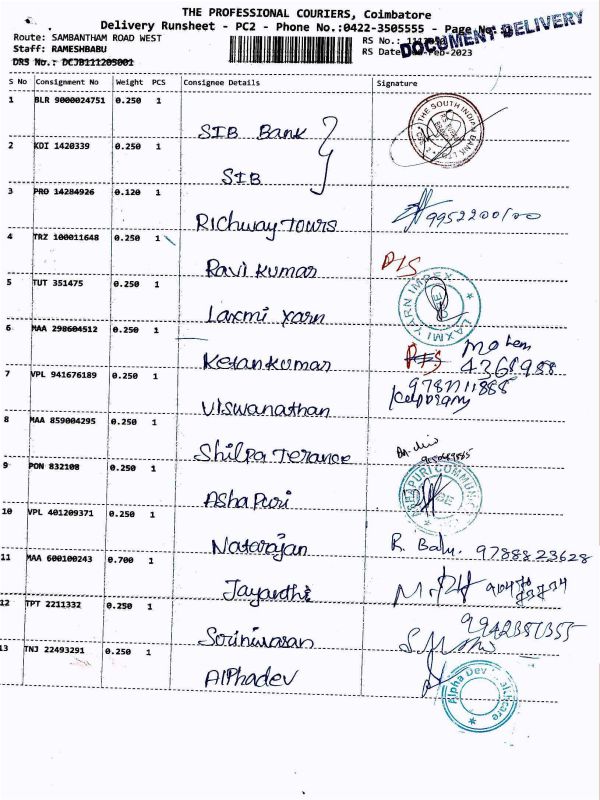 THE PROFESSIONAL COURIERS, Coimbatore
Delivery Runsheet - PC2 - Phone No.:0422-3505555 - Page No:
DOCUMENT DELIVERY
Route: SAMBANTHAM ROAD WEST RS No.:
Staff: RAMESHBABU RS Date: Feb-2023
DRS No.: DCJB111205001
S No Consignment No Weight PCS Consignee Details Signature
1 BLR 9000024751 0.250 1 SIB Bank THE SOUTH INDIAN BANK LTD
2 KDI 1420339 0.250 1 SIB
3 PRO 14284926 0.120 1 Richway Tours 9952200100
4 TRZ 100011648 0.250 1 Ravi Kumar
5 TUT 351475 0.250 1 Laxmi Yarn LAXMI YARN IMPEX
6 MAA 298604512 0.250 1 Ketan Kumar 4368988
7 VPL 941676189 0.250 1 Viswanathan
8 MAA 859004295 0.250 1 Shilpa Terance
9 PON 832108 0.250 1 Asha Puri
10 VPL 401209371 0.250 1 Natarajan R. Balu. 9788823628
11 MAA 600100243 0.700 1 Jayanthi
12 TPT 2211332 0.250 1 Sriniwasan
13 TNJ 22493291 0.250 1 Alphadev Alpha Dev